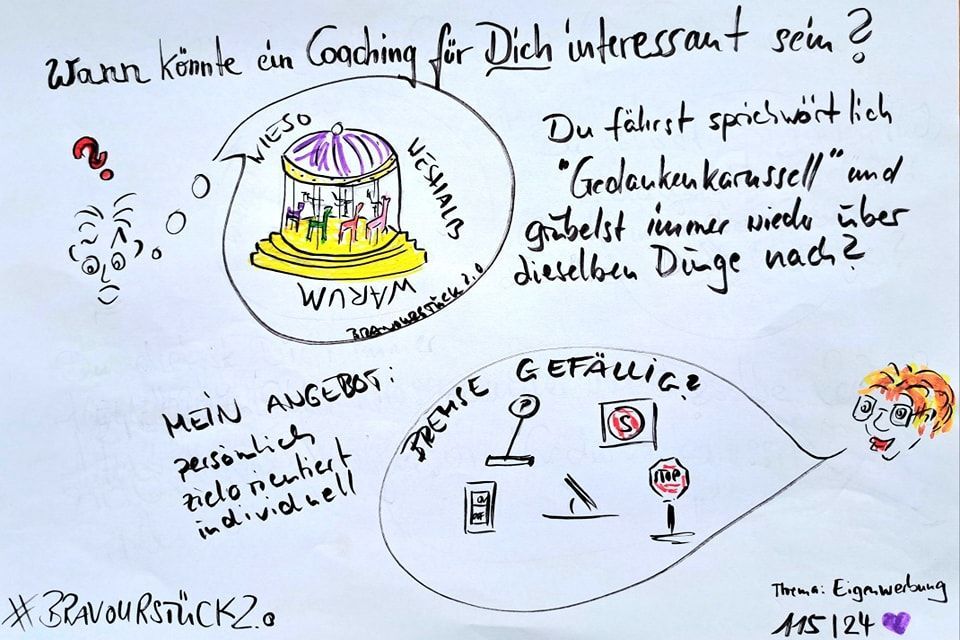 Wann könnte ein Coaching für Dich interessant sein?
?
WIESO
WESHALB
WARUM
BRAVOURSTÜCK 2.0
Du fährst sprichwörtlich
"Gedankenkarussell" und
grübelst immer wieder über
dieselben Dinge nach?
MEIN ANGEBOT:
persönlich
zielorientiert
individuell
BREMSE GEFÄLLIG?
P
S
STOP
#BRAVOURSTÜCK2.0
Thema: Eigenwerbung
115/24